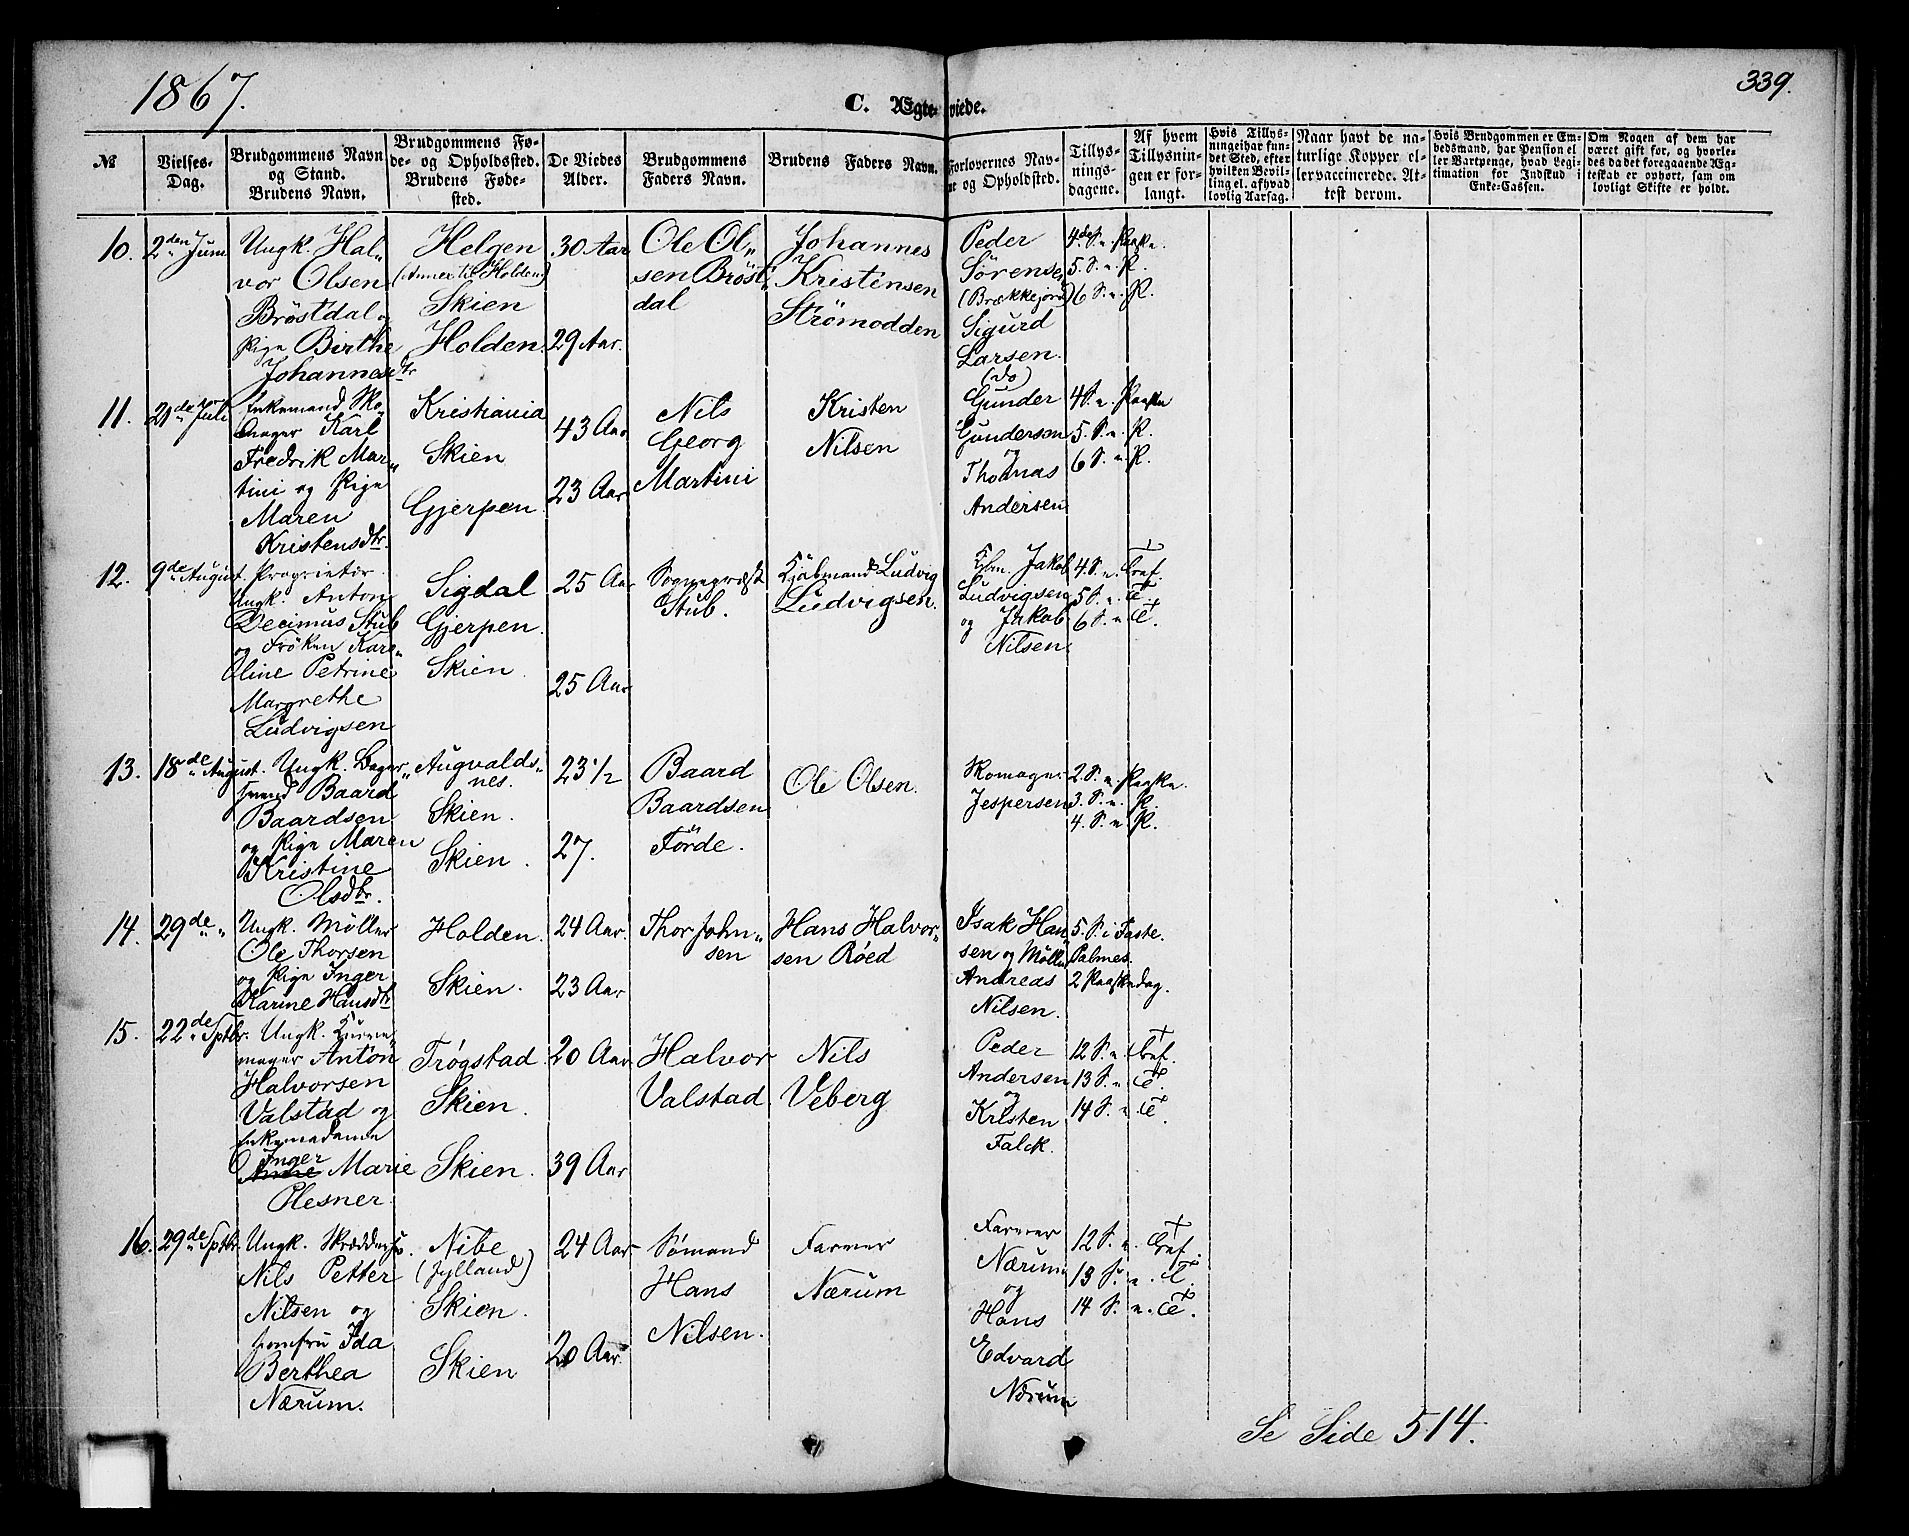 1867.
339.
C. Ægteviede.
№
Vielses-Dag.
Brudgommens Navn og Stand. Brudens Navn.
Brudgommens Fø-de- og Opholdssted. Brudens Føde-sted.
De Viedes Alder.
Brudgommens Faders Navn.
Brudens Faders Navn.
Forlovernes Nav-ne og Opholdsted.
Tillys-nings-dagene.
Af hvem Tillysnin-gen er for-langt.
Hvis Tillys-ningei har fun-det Sted, efter hvilken Bevil-ling el. afhvad lovlig Aarsag.
Naar havt de na-turlige Kopper el-ler vaccinerede. At-test derom.
Hvis Brudgommen er Em-bedsmand, har Pension el ler Vartpenge, hvad Legi-timation for Indskud i Enke-Cassen.
Om Nogen af dem har været gift for, og hvorle-des da det foregaaende Æg-teskab er ophørt, sam om lovligt Skifte er holdt.
10.
2den Juni
Ungk. Hal„
vor Olsen
Bröstdal og
Pige Birthe
Johannesdtr
Helgen
(Annex til Holden)
Skien
Holden.
30 Aar
29 Aar.
Ole Ol„
sen Bröst„
dal
Johannes
Kristensen
Strömodden
Peder
Sörensen
(Brækkejord)
Sigurd
Larsen.
(do)
4de S. e. Paaske.
5. S. e. P.
6 S. e. P.
11.
21de Juli
Enkemand Sko„
mager Karl
Fredrik Mar„
tini og Pige
Maren
Kristensdtr.
Kristiania
Skien
Gjerpen.
43 Aar
23 Aar
Nils
Georg
Martini
Kristen
Nilsen
Gunder
Gundersen
og
Thomas
Andersen
4 S. e. Paaske
5. S. e. P.
6 S. e. P.
12.
9de August.
Proprietör
Ungk. Anton
Decimus Stub
og Fröken Karo„
line Petrine
Margrethe
Ludvigsen
Sigdal
Gjerpen.
Skien.
25 Aar
25 Aar
Sognepræst
Stub.
Kjöbmand Ludvig
Ludvigsen.
Kbm. Jakob
Ludvigsen
og Jakob
Nilsen
4 S. e. Tref.
5 S. e. T.
6 S. e. T.
13.
18de August.
Ungk. Bager„
svend Baard
Baardsen
og Pige Maren
Kristine
Olsdtr.
Augvalds„
nes.
Skien.
Skien.
23 1/2
27.
Baard
Baardsen
Förde.
Ole Olsen.
Skomager
Jespersen
2. S. e. Paaske.
3. S. e. P.
4. S. e. P.
14.
29de „
Ungk. Möller
Ole Thorsen
og Pige Inger
Karine Hansdtr
Holden.
Skien.
24 Aar.
23 Aar
Thor John„
sen
Hans Halvor„
sen Röed
Isak Han„
sen og Möller
Andreas
Nilsen.
5. S. i Faste.
Palmes.
2 Paaskedag.
15.
22de Sptbr.
Ungk.
mager Anton
Halvorsen
Valstad og
Enkemadame
Inger
Marie
Plesner.
Trögstad
Skien.
Skien.
20 Aar
39 Aar
Halvor
Valstad
Nils
Veberg
Peder
Andersen
og
Kristen
Falck.
12 S. e. Tref.
13 S. e. T.
14 S. e. T.
16.
29de Sptbr.
Ungk. Skrædder
Nils Petter
Nilsen og
Jomfru Ida
Berthea
Nærum.
Nibe
(Jylland)
Skien.
Skien
24 Aar
20 Aar
Sömand
Hans
Nilsen.
Farver
Nærum
Farver
Nærum
og
Hans
Edvard
Nærum
12 S. e. Tref.
13 S. e. T.
14 S. e. T.
Se Side 514.